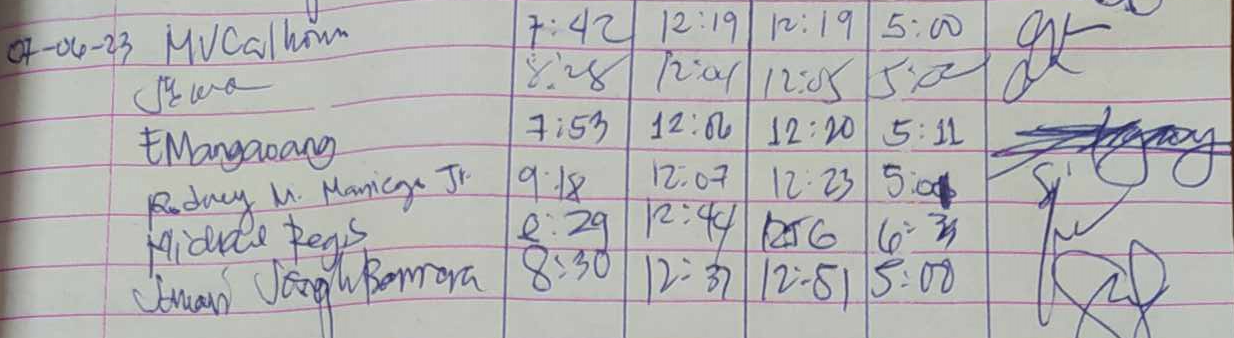 07-06-23 MVCalhoun 7:42 12:19 12:19 5:00
8:28 12:04 12:05 5:02
EMangaoang 7:53 12:06 12:20 5:11
Rodney M. Maniega Jr. 9:18 12:07 12:23 5:01
Michael Regis 8:29 12:44 1256 6:
8:30 12:37 12:51 5:08